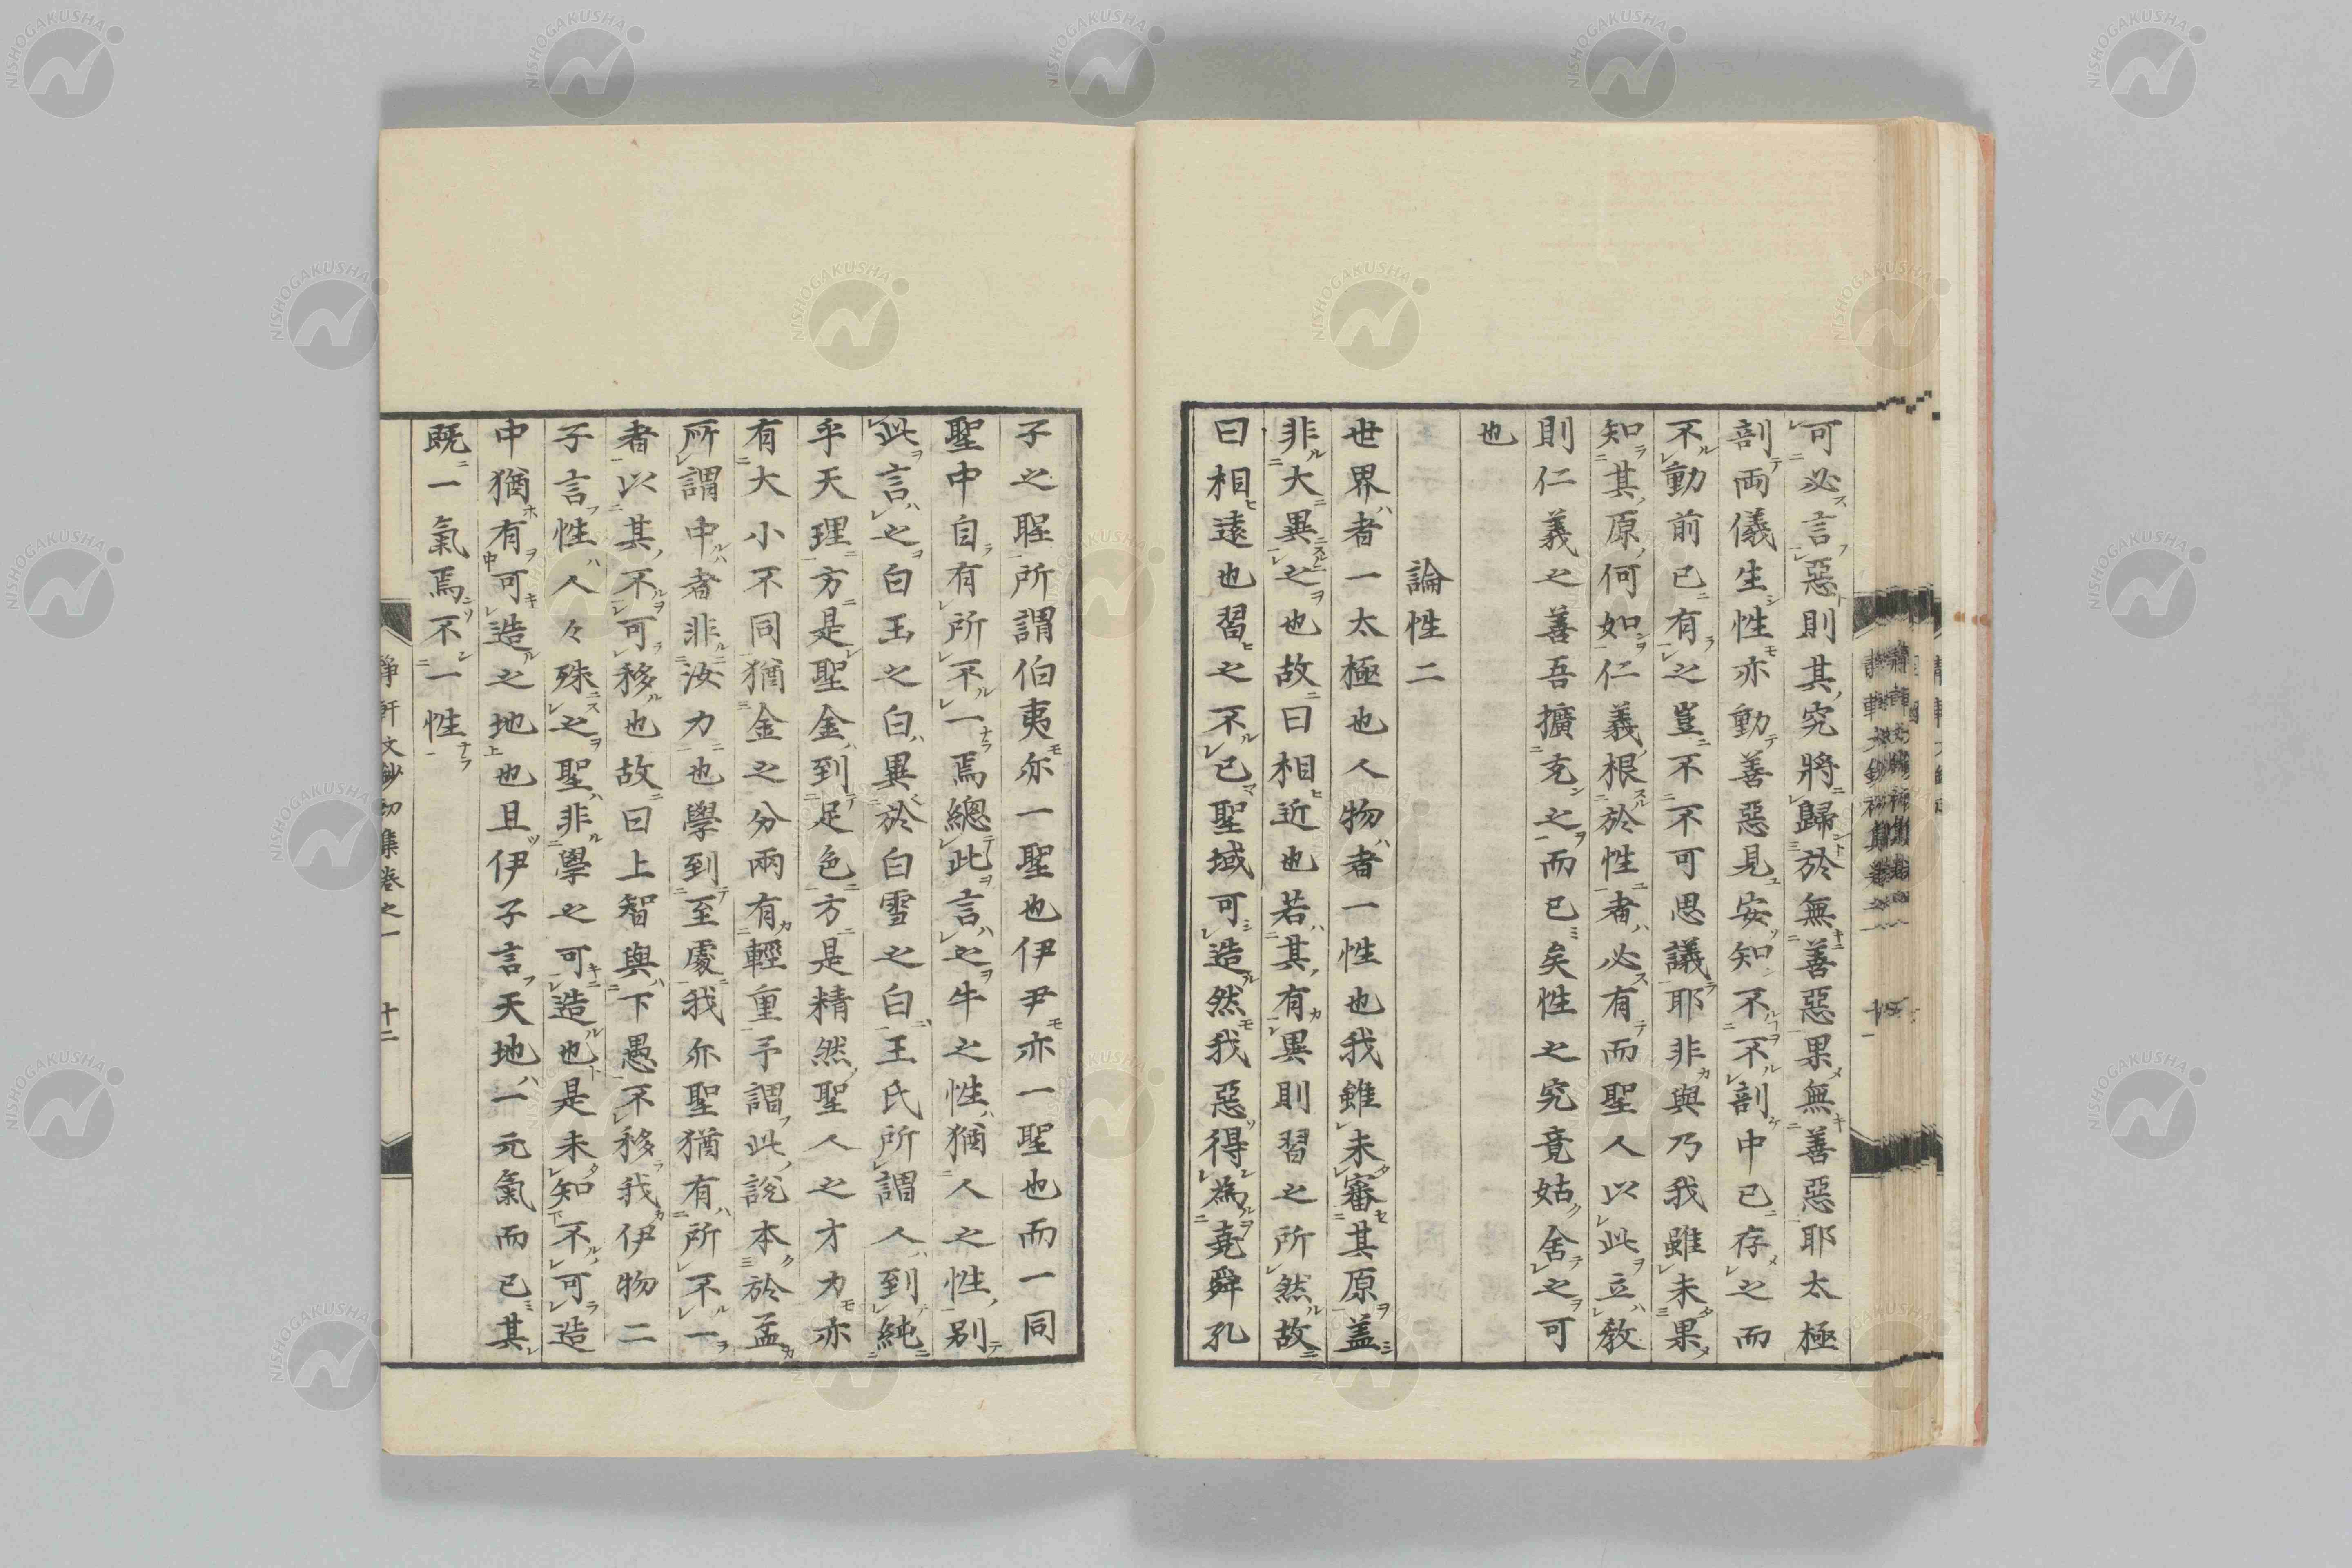 可必言惡則其究將歸於無善惡果無善惡耶太極
剖兩儀生性亦動善惡見安知不不剖中已存之而
不動前已有之豈不不可思議耶非與乃我雖未果
知其原何如仁義根於性者必有而聖人以此立教
則仁義之善吾擴充之而已矣性之究竟姑舍之可
也
論性二
世界者一太極也人物者一性也我雖未審其原盖
非大異之也故曰相近也若其有異則習之所然故
曰相遠也習之不已聖域可造然我惡得為堯舜孔
子之聖所謂伯夷亦一聖也伊尹亦一聖也而一同
聖中自有所不一焉總此言之牛之性猶人之性別
此言之白玉之白異於白雪之白王氏所謂人到純
乎天理方是聖金到足色方是精然聖人之才力亦
有大小不同猶金之分兩有輕重予謂此說本於孟
所謂中者非汝力也學到至處我亦聖猶有所不一
者以其不可移也故曰上智與下愚不移我伊物二
子言性人々殊之聖非學之可造也是未知不可造
中猶有可造之地也且伊子言天地一元氣而已其
既一氣焉不一性
靜軒文鈔初集卷之一 十二
NISHOGAKUSHA